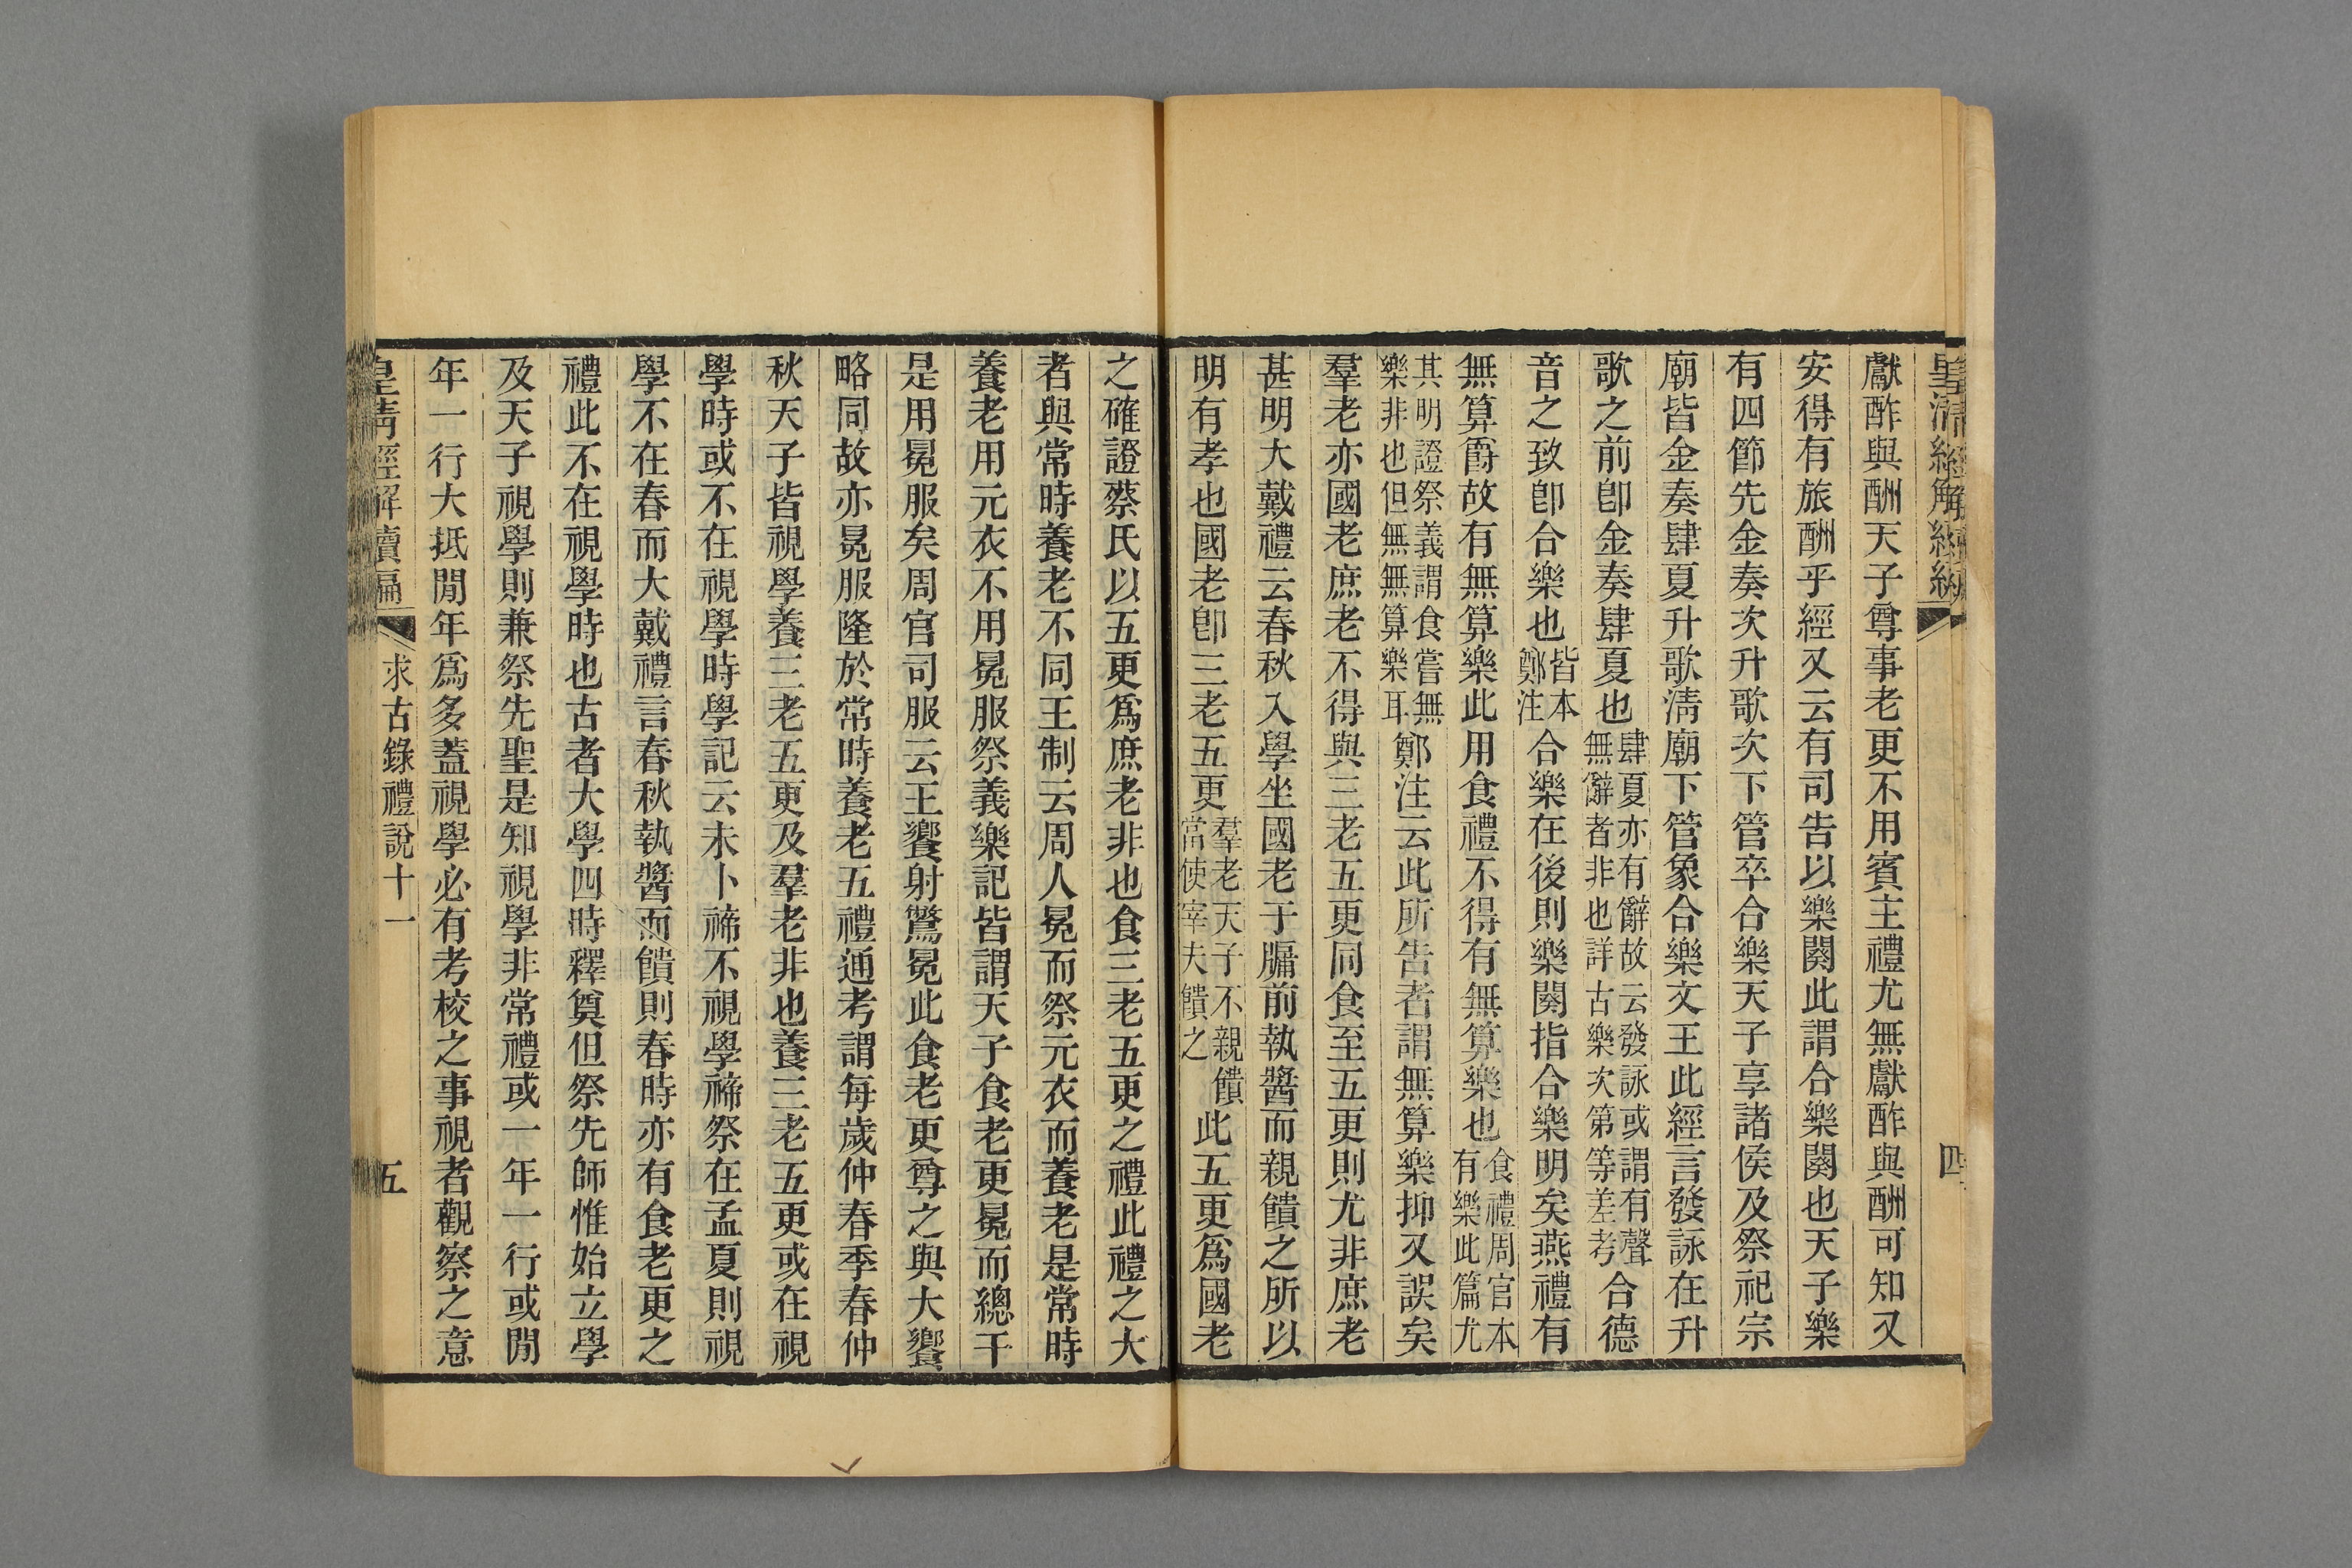 皇清經解續編 四
獻酢與酬天子尊事老更不用賓主禮尤無獻酢與酬可知又
安得有旅酬乎經又云有司告以樂闋此謂合樂闋也天子樂
有四節先金奏次升歌次下管卒合樂天子享諸侯及祭祀宗
廟皆金奏肆夏升歌淸廟下管象合樂文王此經言發詠在升
歌之前卽金奏肆夏也肆夏亦有辭故云發詠或謂有聲無辭者非也詳古樂次第等差考合德
音之致卽合樂也皆本鄭注合樂在後則樂闋指合樂明矣燕禮有
無算爵故有無算樂此用食禮不得有無算樂也食禮周官本有樂此篇尤
其明證祭義謂食嘗無樂非也但無無算樂耳鄭注云此所告者謂無算樂抑又誤矣
羣老亦國老庶老不得與三老五更同食至五更則尤非庶老
甚明大戴禮云春秋入學坐國老于牖前執醬而親饋之所以
明有孝也國老卽三老五更羣老天子不親饋當使宰夫饋之此五更爲國老
之確證蔡氏以五更爲庶老非也食三老五更之禮此禮之大
者與常時養老不同王制云周人冕而祭元衣而養老是常時
養老用元衣不用冕服祭義樂記皆謂天子食老更冕而總干
是用冕服矣周官司服云王饗射驚冕此食老更尊之與大饗
略同故亦冕服隆於常時養老五禮通考謂每歲仲春季春仲
秋天子皆視學養三老五更及羣老非也養三老五更或在視
學時或不在視學時學記云未卜禘不視學禘祭在孟夏則視
學不在春而大戴禮言春秋執醬而饋則春時亦有食老更之
禮此不在視學時也古者大學四時釋奠但祭先師惟始立學
及天子視學則兼祭先聖是知視學非常禮或一年一行或閒
年一行大抵閒年爲多蓋視學必有考校之事視者觀察之意
皇淸經解續編 求古錄禮說十一 五